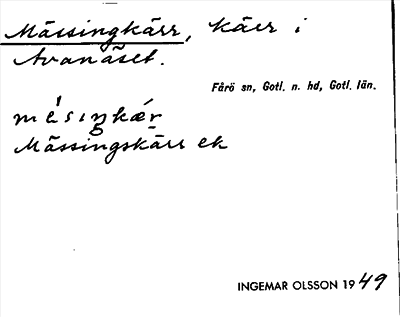 Mässingkärr, kärr i
Avanäset.
Fårö sn, Gotl. n. hd, Gotl. län.
mésıŋkǽr
Mässingskärr ek
INGEMAR OLSSON 1949